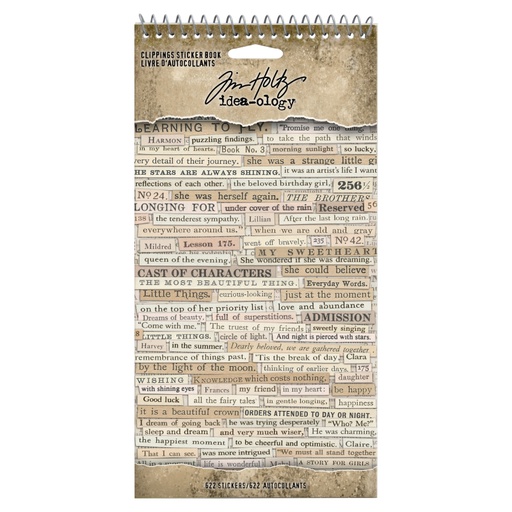 CLIPPINGS STICKER BOOK
LIVRE D'AUTOCOLLANTS
Tim Holtz
idea-ology
LEARNING TO FLY. "Promise me one thing,
HARMON puzzling findings. to take the path that winds
in my heart of hearts. Book No. 3. morning sunlight so lucky,
very detail of their journey. she was a strange little gi
HE STARS ARE ALWAYS SHINING. it was an artist's life I want
reflections of each other. the beloved birthday girl, 256½
No 24. she was herself again. THE BROTHERS
LONGING FOR under cover of the rain Reserved 56
138 the tenderest sympathy. Lillian After the last long rain.
everywhere around us. when we are old and gray
Mildred Lesson 175. went off bravely. 235 No 42.
IN MY SWEETHEART
queen of the evening. She wondered if she was dreaming.
CAST OF CHARACTERS she could believe
THE MOST BEAUTIFUL THING. Everyday Words.
Little Things. curious-looking just at the moment
on the top of her priority list love and abundance
Dreams of beauty. full of superstitions. ADMISSION
"Come with me." The truest of my friends sweetly singing
LITTLE THINGS. circle of light. And night is pierced with stars.
Harvey in the summer. Dearly beloved, we are gathered together
remembrance of things past. 'Tis the break of day. Clara
by the light of the moon. thinking of earlier days. 175
WISHING KNOWLEDGE which costs nothing. daughter
with shining eyes Frances my friend in my heart: be happy
Good luck all the fairy tales in gentle longing, happiness
it is a beautiful crown ORDERS ATTENDED TO DAY OR NIGHT.
I dream of going back he was trying desperately "Who? Me?"
sleep and dream and very much wiser, He was charming,
the happiest moment to be cheerful and optimistic. Claire,
That I can see. was more intrigued "We must all stand together
ALL IN A life is wonderful Mabel A STORY FOR GIRLS
622 STICKERS/622 AUTOCOLLANTS